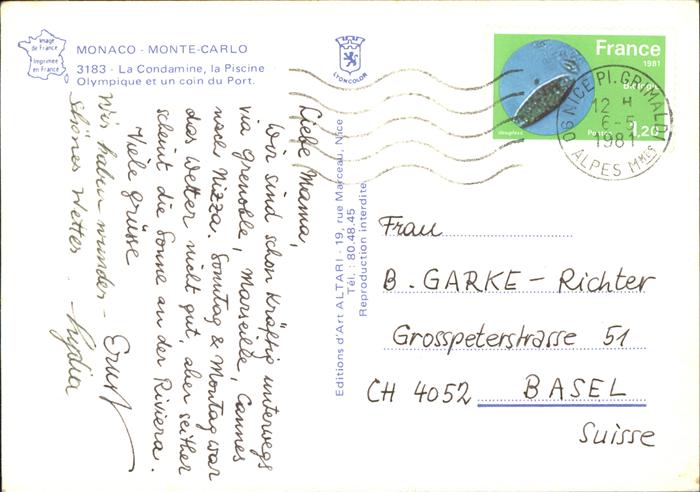 Image
de France
Imprimée
en France
MONACO - MONTE-CARLO
3183 - La Condamine, la Piscine
Olympique et un coin du Port.
LYONCOLOR
Liebe Mama,
Wir sind schon kräftig unterwegs
via Grenoble, Marseille, Cannes
nach Nizza. Sonntag & Montag war
das Wetter nicht gut, aber seither
scheint die Sonne an der Riviera.
Viele Grüsse
Ernst
Wir haben wunder-
schönes Wetter. Lydia
Editions d'Art ALTARI - 19, rue Marceau, Nice
Tél.: 80.48.45
Reproduction interdite
France
1981
1,20
Postes
06 NICE PL. GRIMALDI
12 H
6-5
1981
ALPES MMES
Frau
B. GARKE - Richter
Grosspeterstrasse 51
CH 4052 BASEL
Suisse